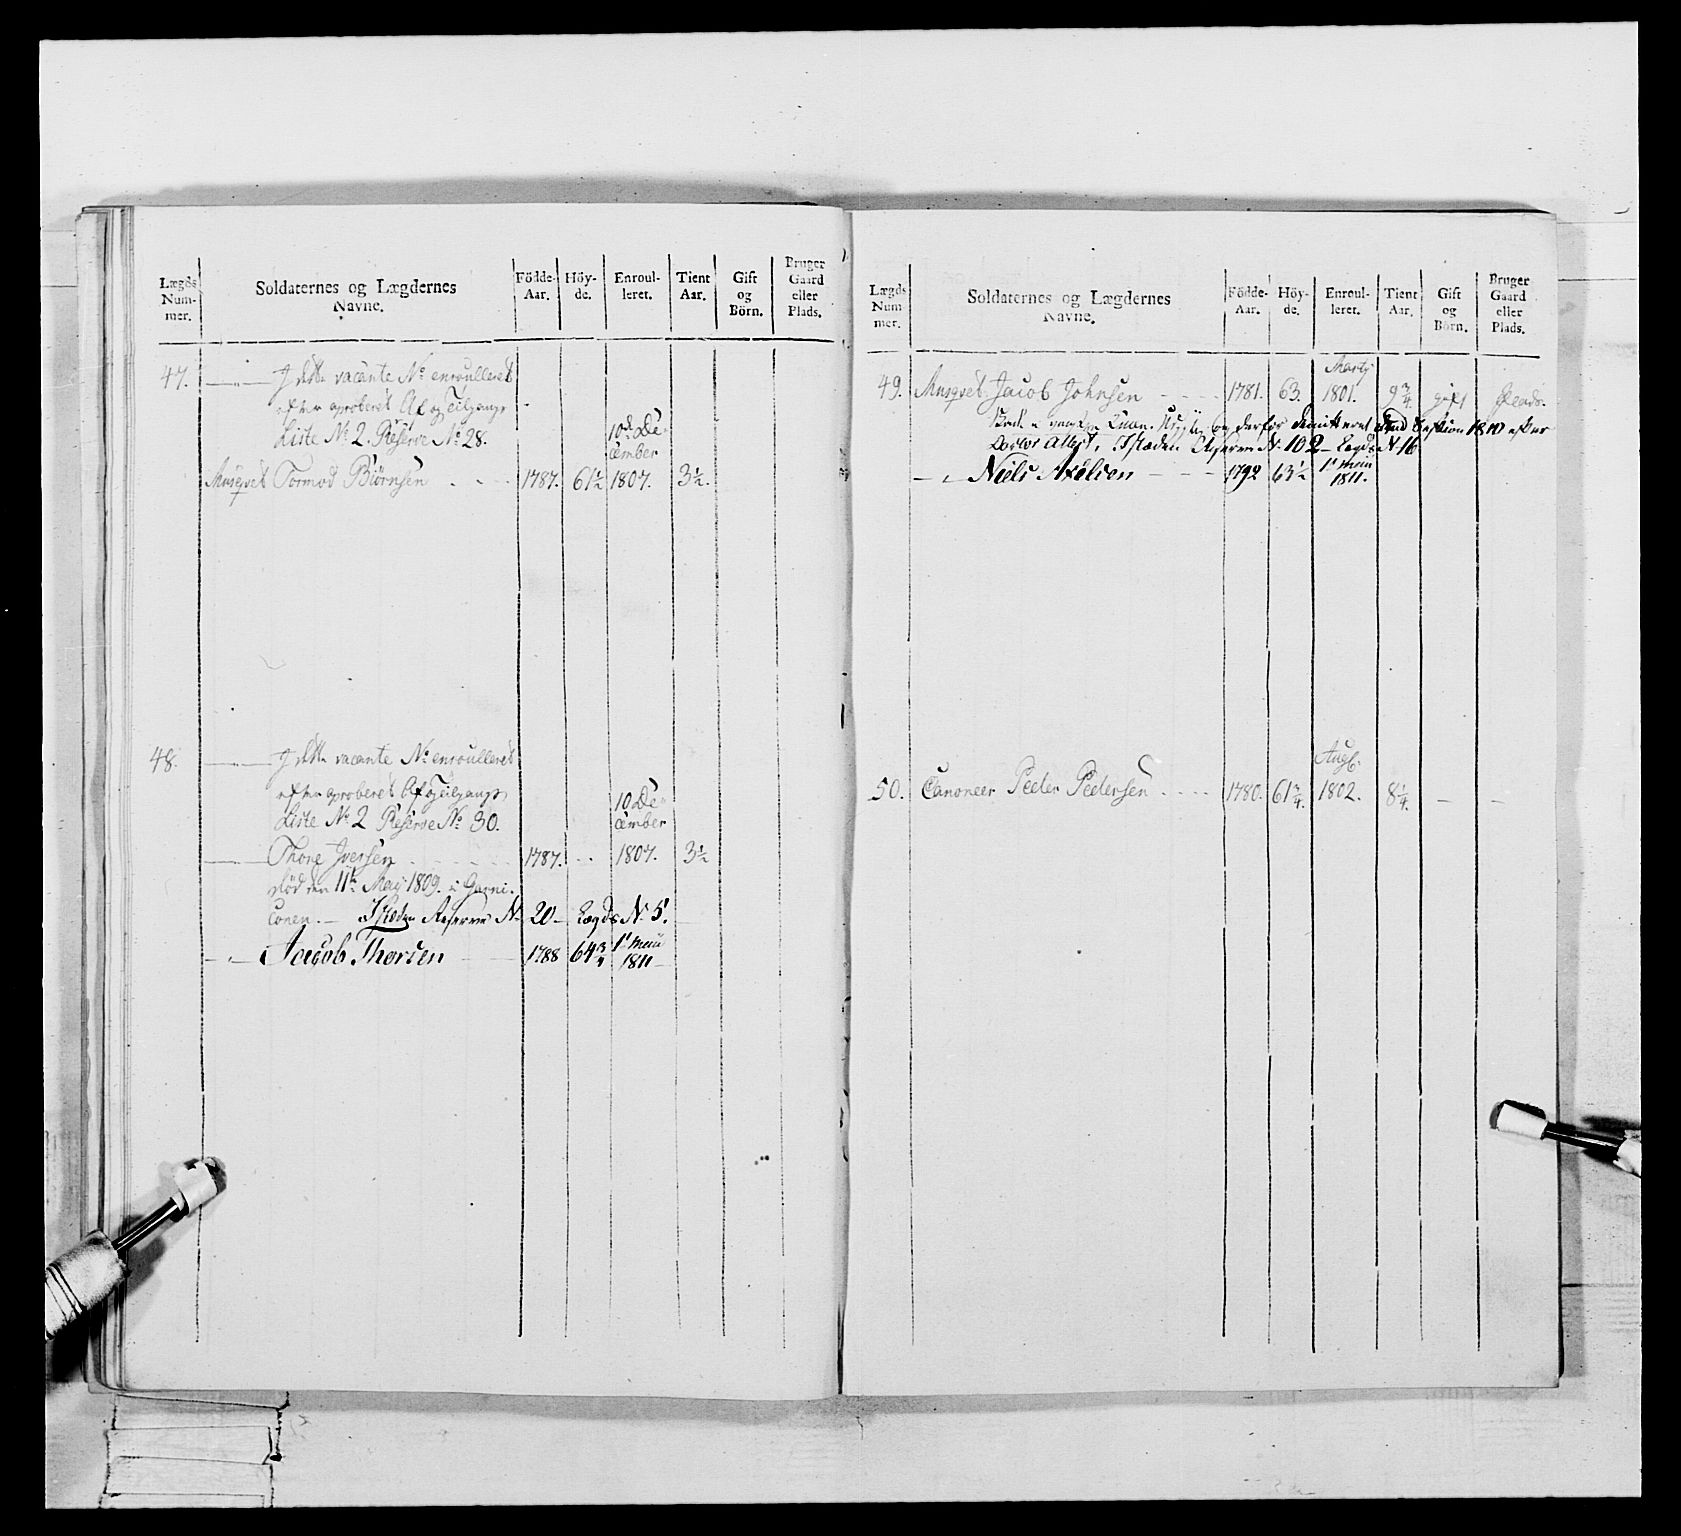 Lægds Num- mer.
Soldaternes og Lægdernes Navne.
Födde- Aar.
Höy- de.
Enroul- leret.
Tient Aar.
Gift og Börn.
Bruger Gaard eller Plads.
47. J dette vacante No enroulleret
efter aproberet Af og Tilgangs
Liste No 2. Reserve No 28. 10de De-
cember
Musqvet Tormod Biörnsen 1787. 61 1/2 1807. 3 1/2.
48. J dette vacante No enroulleret
efter aproberet Af og Tilgangs
Liste No 2 Reserve No 30. 10 De-
cember
Thore Iversen 1787. 1807. 3 1/2
död den 11te May 1809. i Garni-
conen. - J Steden Reserve No 20 - Lægds No 5.
Jacob Thorsen 1788 64 3/4 1t Maii
1811
Lægds Num mer.
Soldaternes og Lægdernes Navne.
Födde- Aar.
Höy- de.
Enroul- leret.
Tient Aar.
Gift og Börn.
Bruger Gaard eller Plads.
Marty
49. Musqvet Jacob Johnsen 1781. 63. 1801. 9 3/4. gift Plads.
og derfor demitteret ved Session 1810 efter
Attest, J Steden Reserve N. 102 - Lægds N 16
Niels Axelsen 1792 63 1/2 1t Maii
1811.
Augt.
50. Canoneer Peder Pedersen 1780. 61 3/4. 1802. 8 1/4. - -